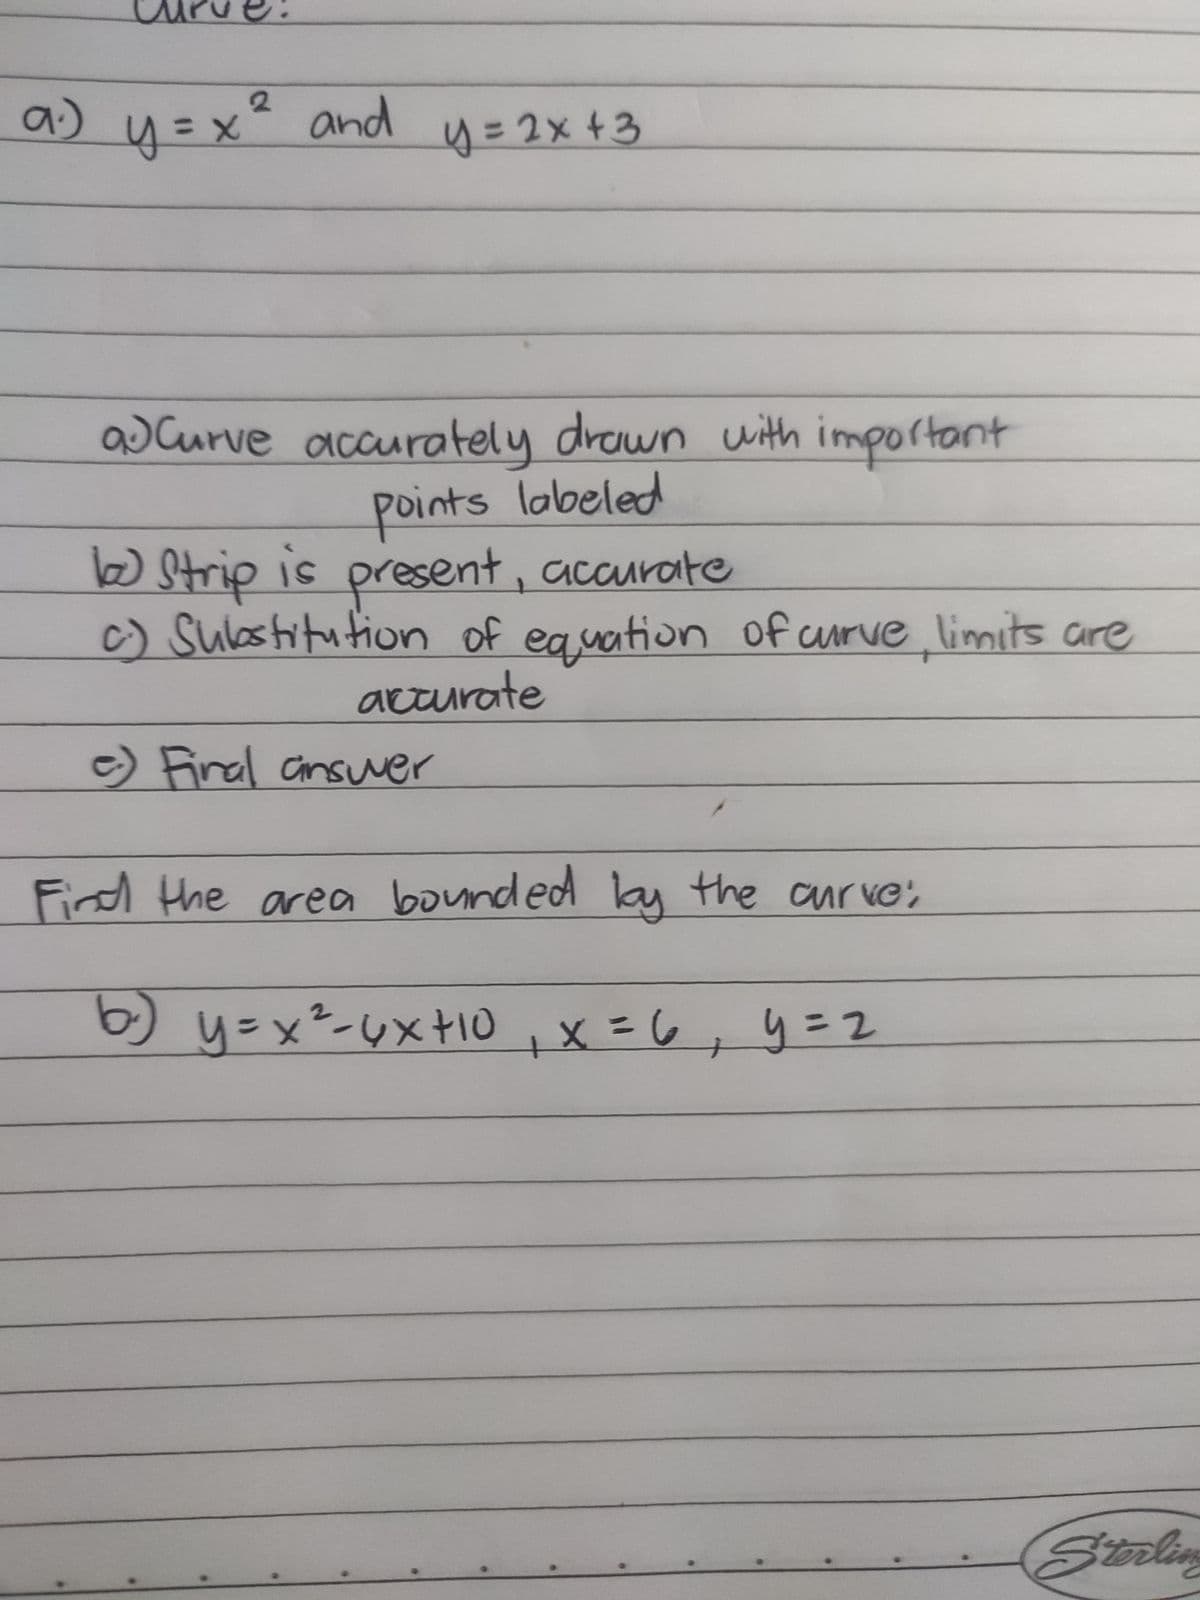 Curve:
a.) y = x² and y = 2x + 3
a.) Curve accurately drawn with important
points labeled
b.) Strip is present, accurate
c.) Substitution of equation of curve, limits are
accurate
c.) Final answer
Find the area bounded by the curve:
b.) y = x² - 4x + 10 , x = 6 , y = 2
Sterling